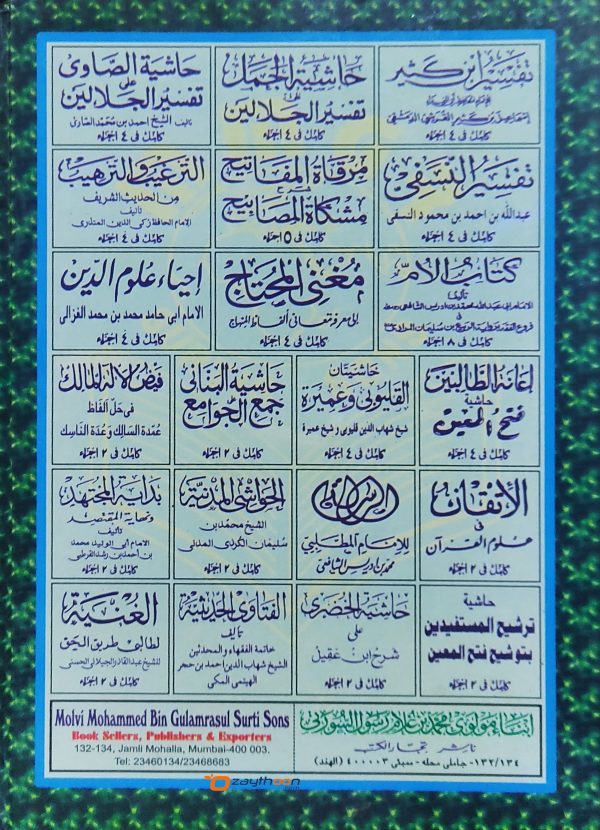 تفسير ابن كثير
للإمام الحافظ أبي الفداء
إسماعيل بن كثير القرشي الدمشقي
كامل في ٤ اجزاء
حاشية الجمل
على
تفسير الجلالين
كامل في ٤ اجزاء
حاشية الصاوى
على
تفسير الجلالين
تاليف الشيخ احمد بن محمد الصاوى
كامل في ٤ اجزاء
تفسير النسفي
عبدالله بن احمد بن محمود النسفى
كامل في ٤ اجزاء
مرقاة المفاتيح
شرح
مشكاة المصابيح
كامل في ٥ اجزاء
الترغيب والترهيب
من الحديث الشريف
تأليف
الامام الحافظ زكي الدين المنذرى
كامل في ٤ اجزاء
كتاب الأم
تأليف
الامام ابي عبدالله محمد بن ادريس الشافعى
فروع الفقه برواية الربيع بن سليمان المرادى
كامل في ٨ اجزاء
مغني المحتاج
إلى معرفة معاني ألفاظ المنهاج
كامل في ٤ اجزاء
إحياء علوم الدين
الامام ابى حامد محمد بن محمد الغزالى
كامل في ٤ اجزاء
إعانة الطالبين
حاشية
فتح المعين
كامل في ٤ اجزاء
حاشيتان
القليوبى وعميرة
شيخ شهاب الدين قليوبى و شيخ عميرة
كامل في ٤ اجزاء
حاشية البناني
على
جمع الجوامع
كامل في ٢ اجزاء
فيض الاله المالك
فى حل الفاظ
عمدة السالك وعدة الناسك
كامل في ٢ اجزاء
الإتقان
فى
علوم القرآن
كامل في ٢ اجزاء
الرسالة
للإمام المطلبي
محمد بن ادريس الشافعي
الحواشى المدنية
الشيخ محمد بن
سليمان الكردى المدنى
كامل في ٢ اجزاء
بداية المجتهد
ونهاية المقتصد
تأليف
الامام أبى الوليد محمد
بن احمد بن رشد القرطبى
كامل في ٢ اجزاء
حاشية
ترشيح المستفيدين
بتوشيح فتح المعين
كامل في ٢ اجزاء
حاشية الخضرى
على
شرح ابن عقيل
كامل في ٢ اجزاء
الفتاوى الحديثية
تأليف
خاتمة الفقهاء و المحدثين
الشيخ شهاب الدين احمد بن حجر
الهيتمى المكى
الغنية
لطالبى طريق الحق
للشيخ عبدالقادر الجيلانى الحسنى
كامل في ٢ اجزاء
Molvi Mohammed Bin Gulamrasul Surti Sons
Book Sellers, Publishers & Exporters
132-134, Jamli Mohalla, Mumbai-400 003.
Tel: 23460134/23468683
ابناء مولوى محمد بن غلام رسول السورتى
ناشر تجار الكتب
١٣٢/١٣٤- جاملى محله - ممبئى ٤٠٠٠٠٣ (الهند)
zaythoon